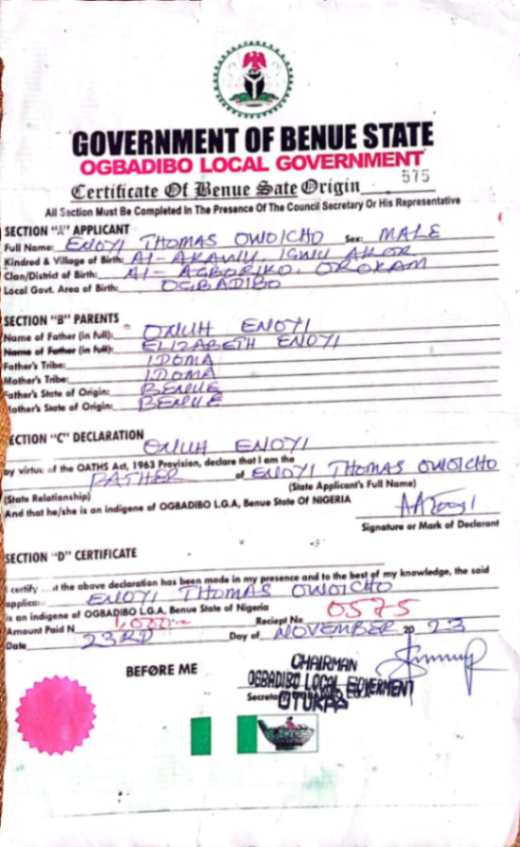 GOVERNMENT OF BENUE STATE
OGBADIBO LOCAL GOVERNMENT
Certificate Of Benue Sate Origin 575
All Section Must Be Completed In The Presence Of The Council Secretary Or His Representative
SECTION "A" APPLICANT
Full Name: ENOYI THOMAS OWOICHO Sex: MALE
Kindred & Village of Birth: AI- AKAWU, IGWU AKOR
Clan/District of Birth: AI- AGBORIKO, OROKAM
Local Govt. Area of Birth: OGBADIBO
SECTION "B" PARENTS
Name of Father (in full): ONUH ENOYI
Name of Father (in full): ELIZABETH ENOYI
Father's Tribe: IDOMA
Mother's Tribe: IDOMA
Father's State of Origin: BENUE
Mother's State of Origin: BENUE
SECTION "C" DECLARATION
ONUH ENOYI
by virtue of the OATHS Act, 1963 Provision, declare that I am the
FATHER of ENOYI THOMAS OWOICHO
(State Relationship) (State Applicant's Full Name)
And that he/she is an indigene of OGBADIBO L.G.A, Benue State Of NIGERIA
Signature or Mark of Declarant
SECTION "D" CERTIFICATE
I certify the above declaration has been made in my presence and to the best of my knowledge, the said
applica ENOYI THOMAS OWOICHO
is an indigene of OGBADIBO L.G.A, Benue State of Nigeria
Amount Paid N 1,000 Reciept No 0575
Date 23RD Day of NOVEMBER 20 23
BEFORE ME
CHAIRMAN
OGBADIBO LOCAL GOVERNMENT
OTUKPA